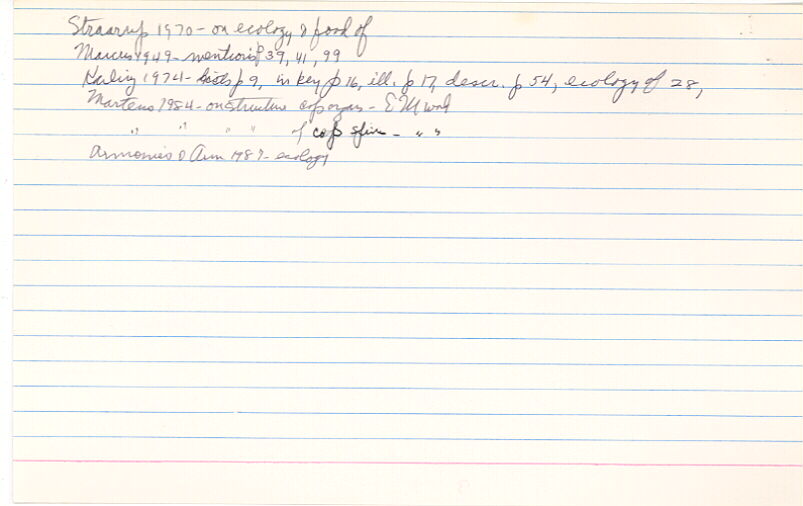 Straarup 1970 - on ecology & food of
Marcus 1949 - mentions p 39, 41, 99
Karling 1974 - lists p 9, in key p 16, ill. p 17, descr. p 54, ecology of 28,
Martens 1984 - on structure cop organ - EM work
" " " " of cop spine - " "
Armonies & 1987 - ecology